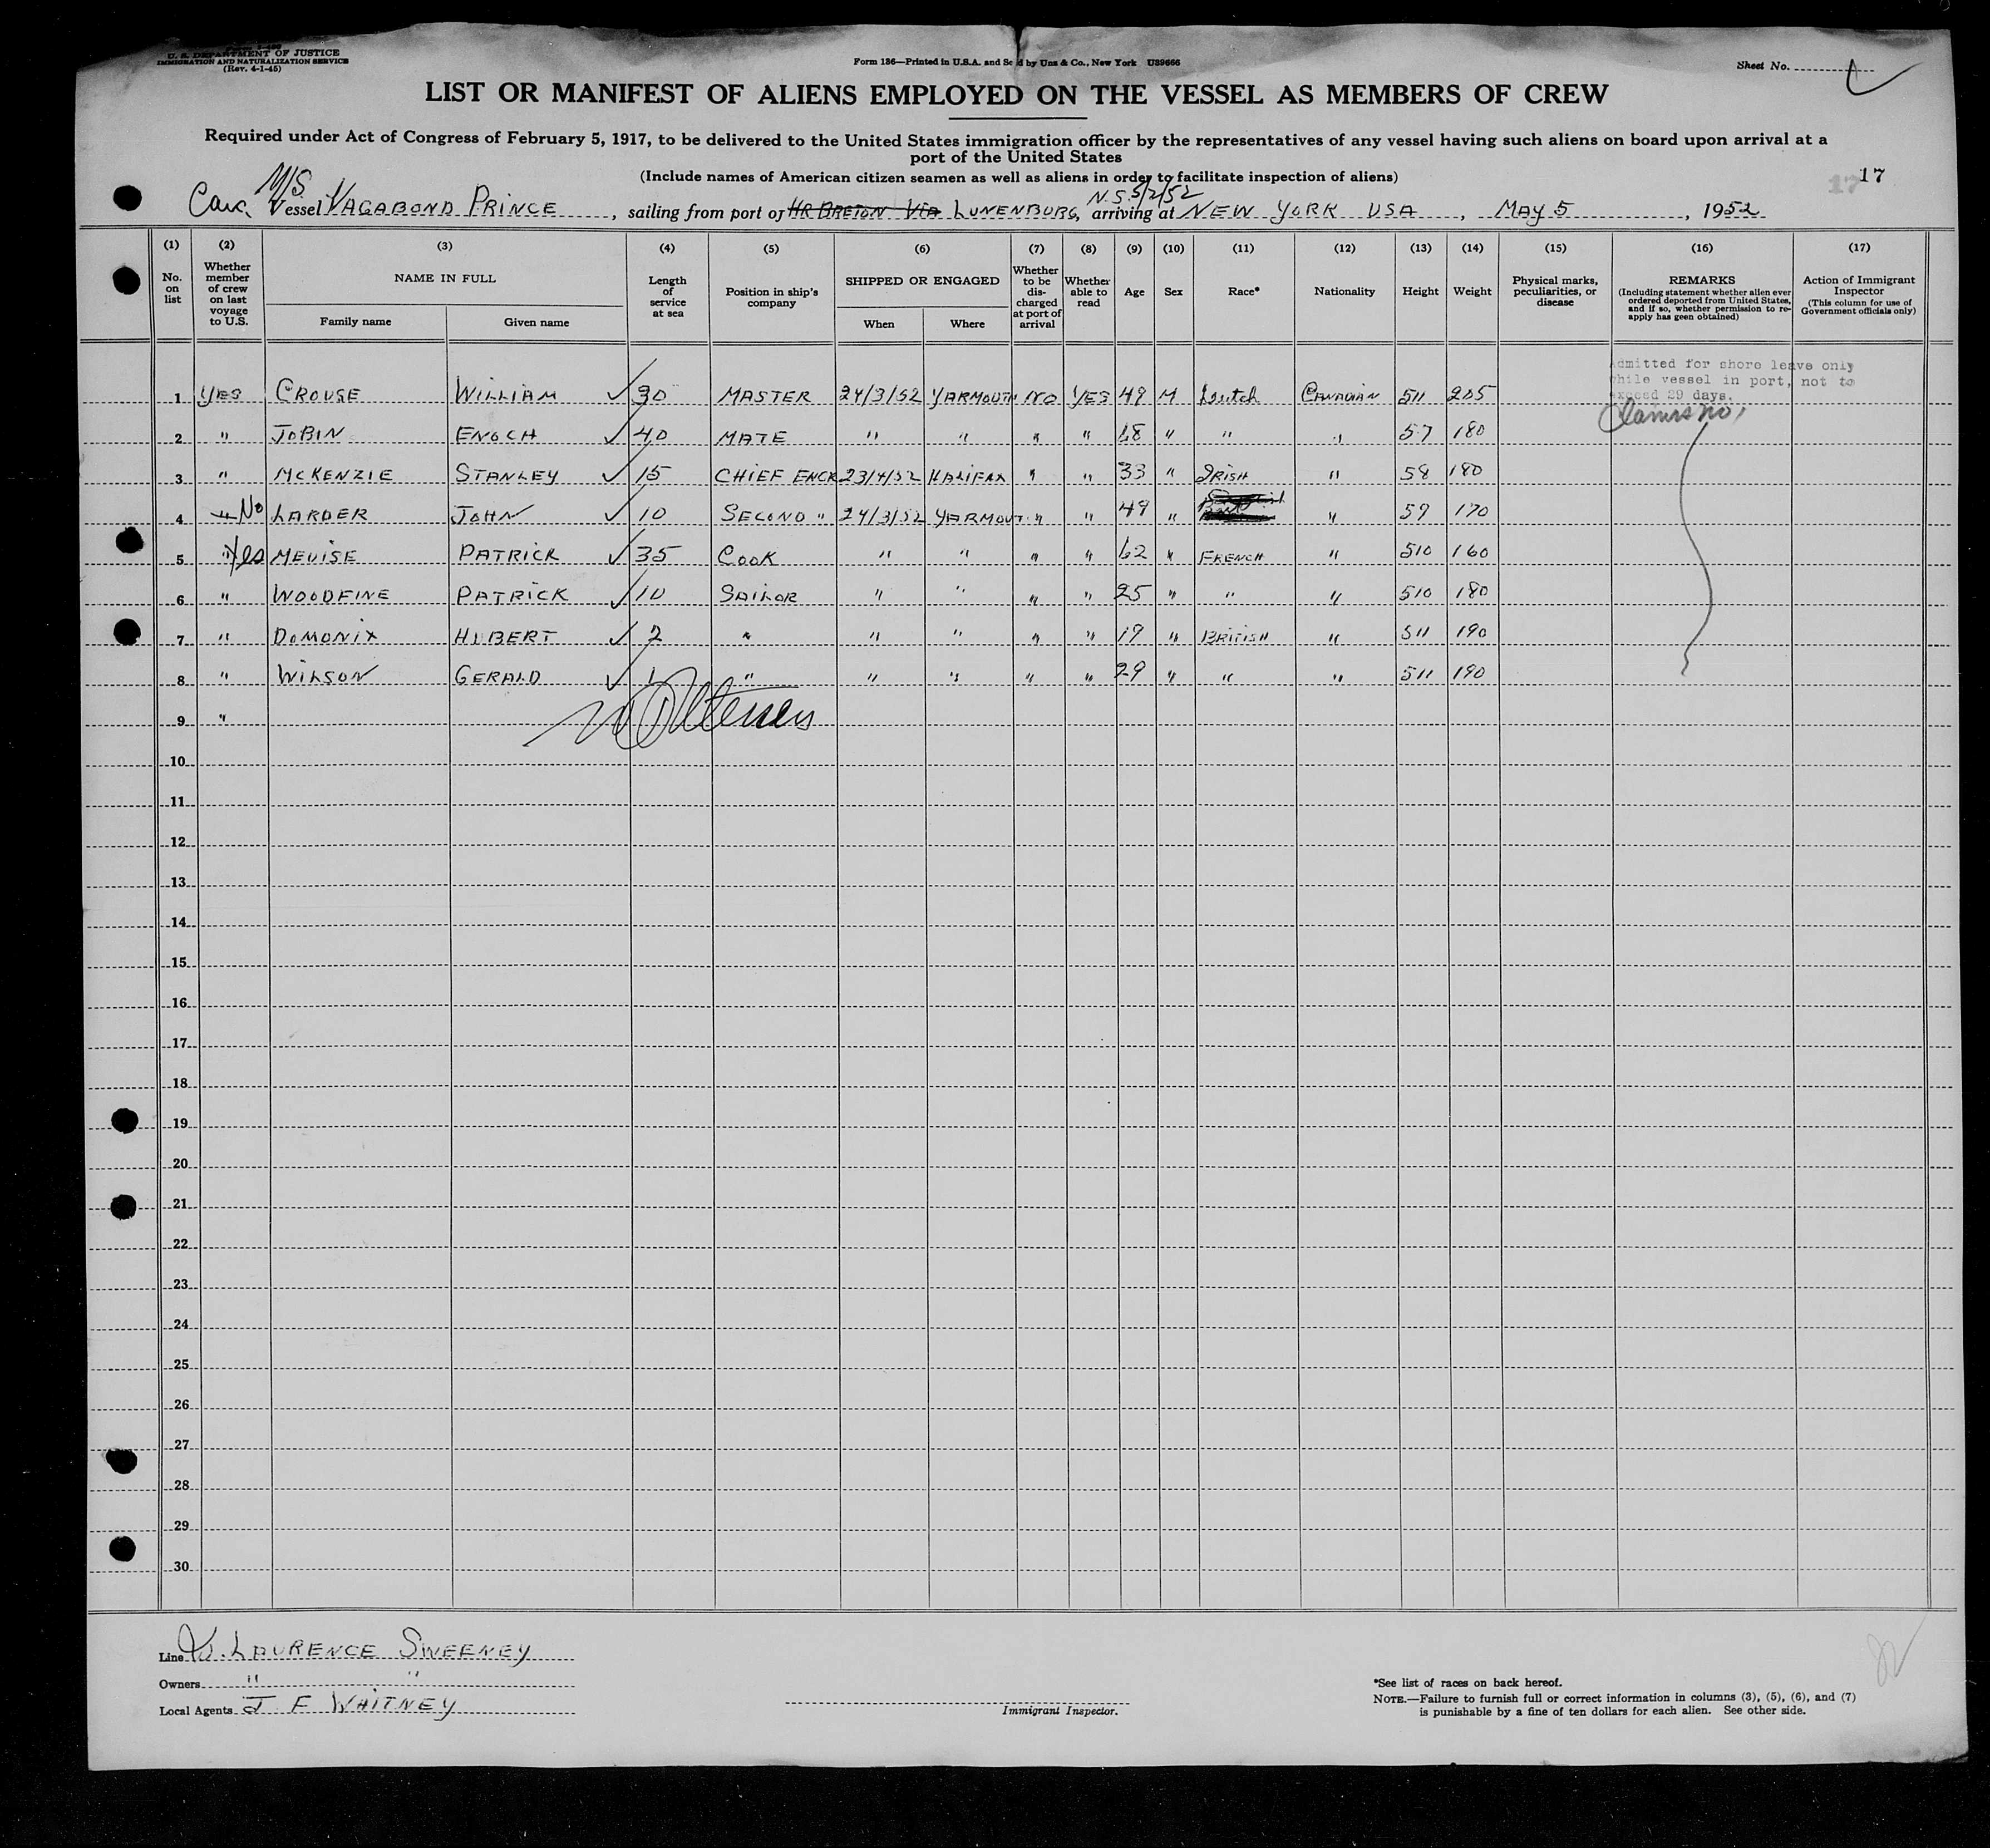 U. S. DEPARTMENT OF JUSTICE
IMMIGRATION AND NATURALIZATION SERVICE
(Rev. 4-1-45)
Form 136—Printed in U.S.A. and Sold by Unz & Co., New York U39666
Sheet No.
LIST OR MANIFEST OF ALIENS EMPLOYED ON THE VESSEL AS MEMBERS OF CREW
Required under Act of Congress of February 5, 1917, to be delivered to the United States immigration officer by the representatives of any vessel having such aliens on board upon arrival at a
port of the United States
(Include names of American citizen seamen as well as aliens in order to facilitate inspection of aliens)
17 17
M/S N.S. 5/2/52
Vessel VAGABOND PRINCE, sailing from port of HR BRETON VIA LUNENBURG, arriving at NEW YORK USA, MAY 5, 1952
(1) (2) (3) (4) (5) (6) (7) (8) (9) (10) (11) (12) (13) (14) (15) (16) (17)
No. on list
Whether member of crew on last voyage to U.S.
NAME IN FULL
Family name Given name
Length of service at sea
Position in ship's company
SHIPPED OR ENGAGED
When Where
Whether to be discharged at port of arrival
Whether able to read
Age Sex Race* Nationality Height Weight
Physical marks, peculiarities, or disease
REMARKS
(Including statement whether alien ever ordered deported from United States, and if so, whether permission to re-apply has geen obtained)
Action of Immigrant Inspector
(This column for use of Government officials only)
Admitted for shore leave only
while vessel in port, not to
exceed 29 days.
1 YES CROUSE WILLIAM ✓ 30 MASTER 24/3/52 YARMOUTH NO YES 49 M Dutch CANADIAN 511 205
2 " JOBIN ENOCH ✓ 40 MATE " " " " 68 " " " 57 180
3 " MCKENZIE STANLEY ✓ 15 CHIEF ENGR 23/4/52 HALIFAX " " 33 " IRISH " 58 180
4 " No LARDER JOHN ✓ 10 SECOND " 24/3/52 YARMOUT " " 49 " " 59 170
5 " Yes MEUISE PATRICK ✓ 35 COOK " " " " 62 " FRENCH " 510 160
6 " WOODFINE PATRICK ✓ 10 SAILOR " " " " 25 " " " 510 180
7 " DOMONIX HUBERT ✓ 2 " " " " " 19 " BRITISH " 511 190
8 " WILSON GERALD ✓ 1 " " " " " 29 " " " 511 190
9 "
10
11
12
13
14
15
16
17
18
19
20
21
22
23
24
25
26
27
28
29
30
Line LAURENCE SWEENEY
Owners " "
Local Agents J F WHITNEY
Immigrant Inspector.
*See list of races on back hereof.
NOTE.—Failure to furnish full or correct information in columns (3), (5), (6), and (7)
is punishable by a fine of ten dollars for each alien. See other side.